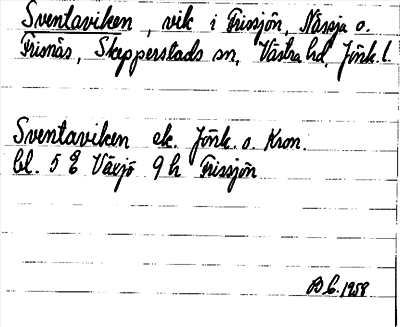 Sventaviken, vik i Frissjön, Nässja o.
Frisnäs, Skepperstads sn, Västra hd, Jönk. l.
Sventaviken ek. Jönk. o. Kron.
bl. 5 E Växjö 9 h Frissjön
B C. 1958